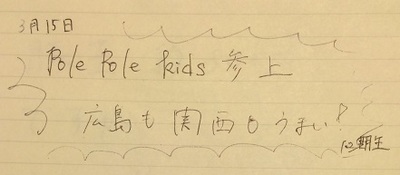 3月15日
Pole Pole kids 参上
広島も関西もうまい!
12期生